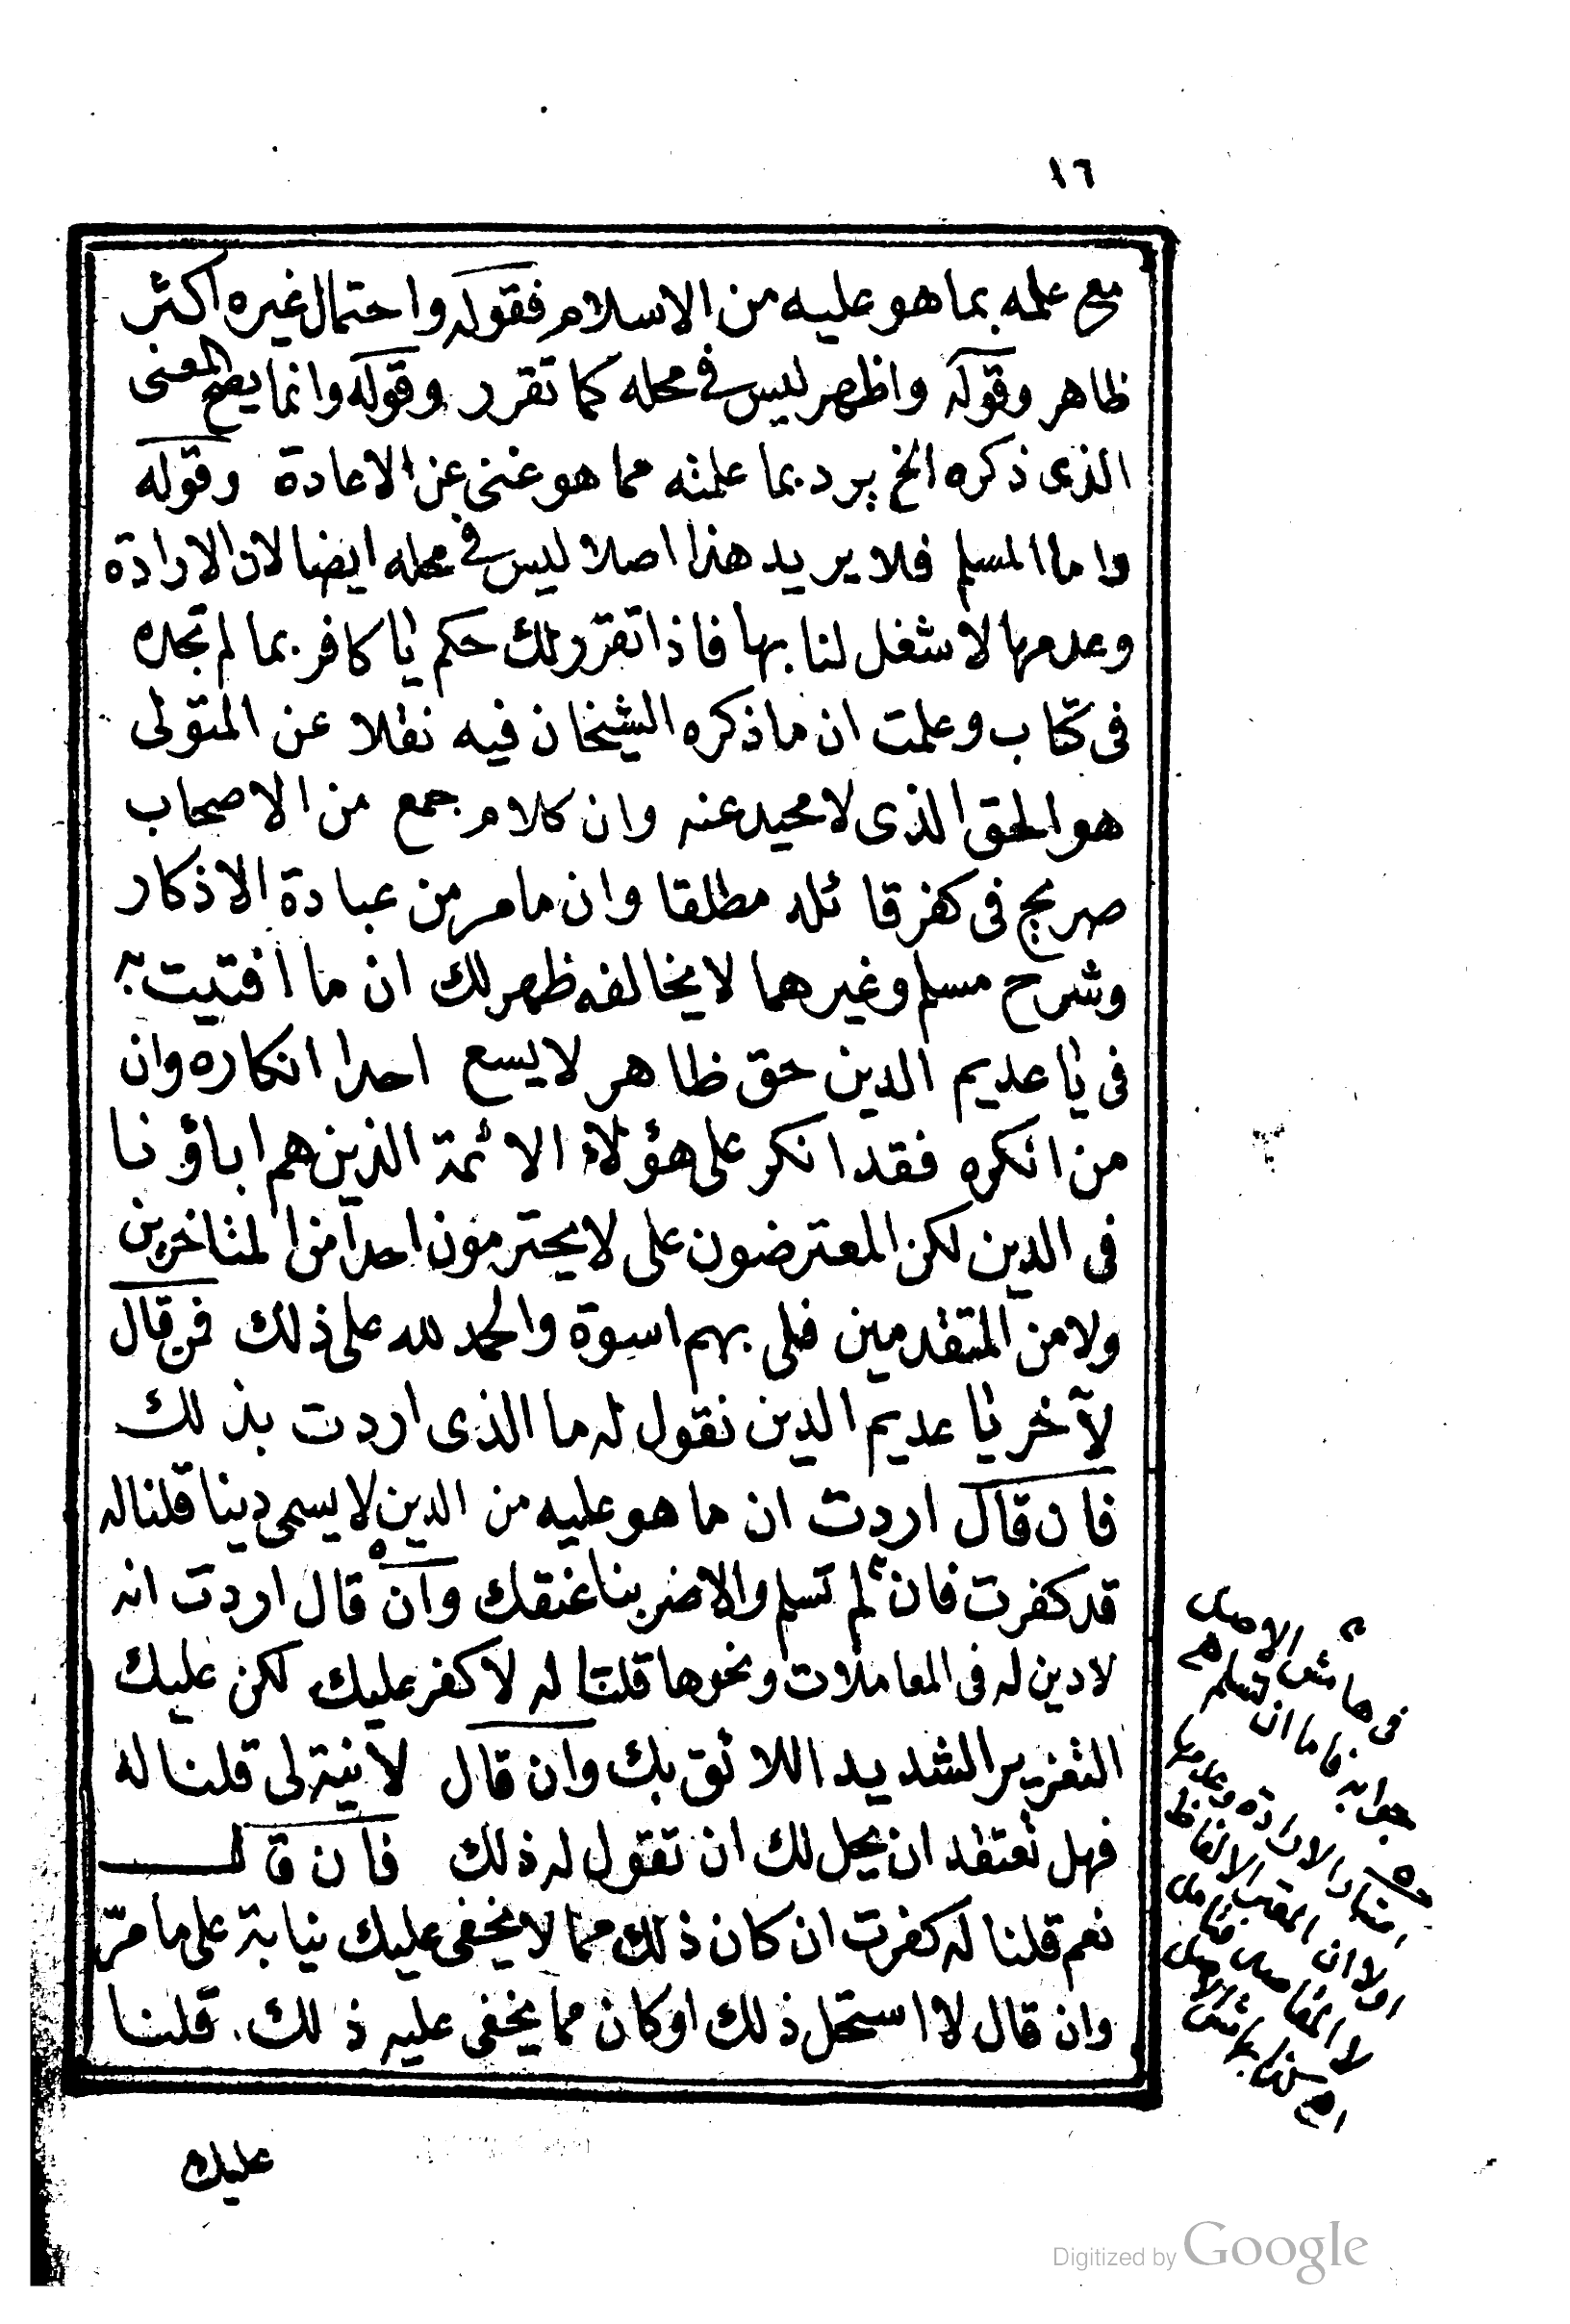 ١٦
مع علمه بما هو عليه من الاسلام فقوله واحتمال غيره اكثر
ظاهر وقوله واظهر ليس فى محله كما تقرر وقوله وانما يصح المعنى
الذى ذكره الخ يرد بما علمته مما هو غنى عن الاعادة وقوله
واما المسلم فلا يريد هذا اصلا ليس فى محله ايضا لان الارادة
وعدمها لا شغل لنا بها فاذا تقرر لك حكم يا كافر بما لم تجده
فى كتاب وعلمت ان ما ذكره الشيخان فيه نقلا عن المتولى
هو الحق الذى لا محيد عنه وان كلام جمع من الاصحاب
صريح فى كفر قائله مطلقا وان ما مر من عبادة الاذكار
وشرح مسلم وغيرهما لا يخالفه ظهر لك ان ما افتيت به
فى يا عديم الدين حق ظاهر لا يسع احدا انكاره وان
من انكره فقد انكر على هؤلاء الائمة الذين هم اباؤنا
فى الدين لكن المعترضون على لا يحترمون احدا من المتاخرين
ولا من المتقدمين فلى بهم اسوة والحمد لله على ذلك فمن قال
لآخر يا عديم الدين نقول له ما الذى اردت بذلك
فان قال اردت ان ما هو عليه من الدين لا يسمى دينا قلنا له
قد كفرت فان لم تسلم والا ضربنا عنقك وان قال اردت انه
لا دين له فى المعاملات ونحوها قلنا له لا كفر عليك لكن عليك
التعزير الشديد اللائق بك وان قال لا نية لى قلنا له
فهل تعتقد ان يحل لك ان تقول له ذلك فان قال
نعم قلنا له كفرت ان كان ذلك مما لا يخفى عليك نيابة على ما مرّ
وان قال لا استحل ذلك او كان مما يخفى عليه ذلك قلنا
فى هامش الاصل
جوابه فاما ان تسلم
الارادة وعدمها
اولا ان المعتبر الالفاظ
لا المقاصد
عليك
Digitized by Google